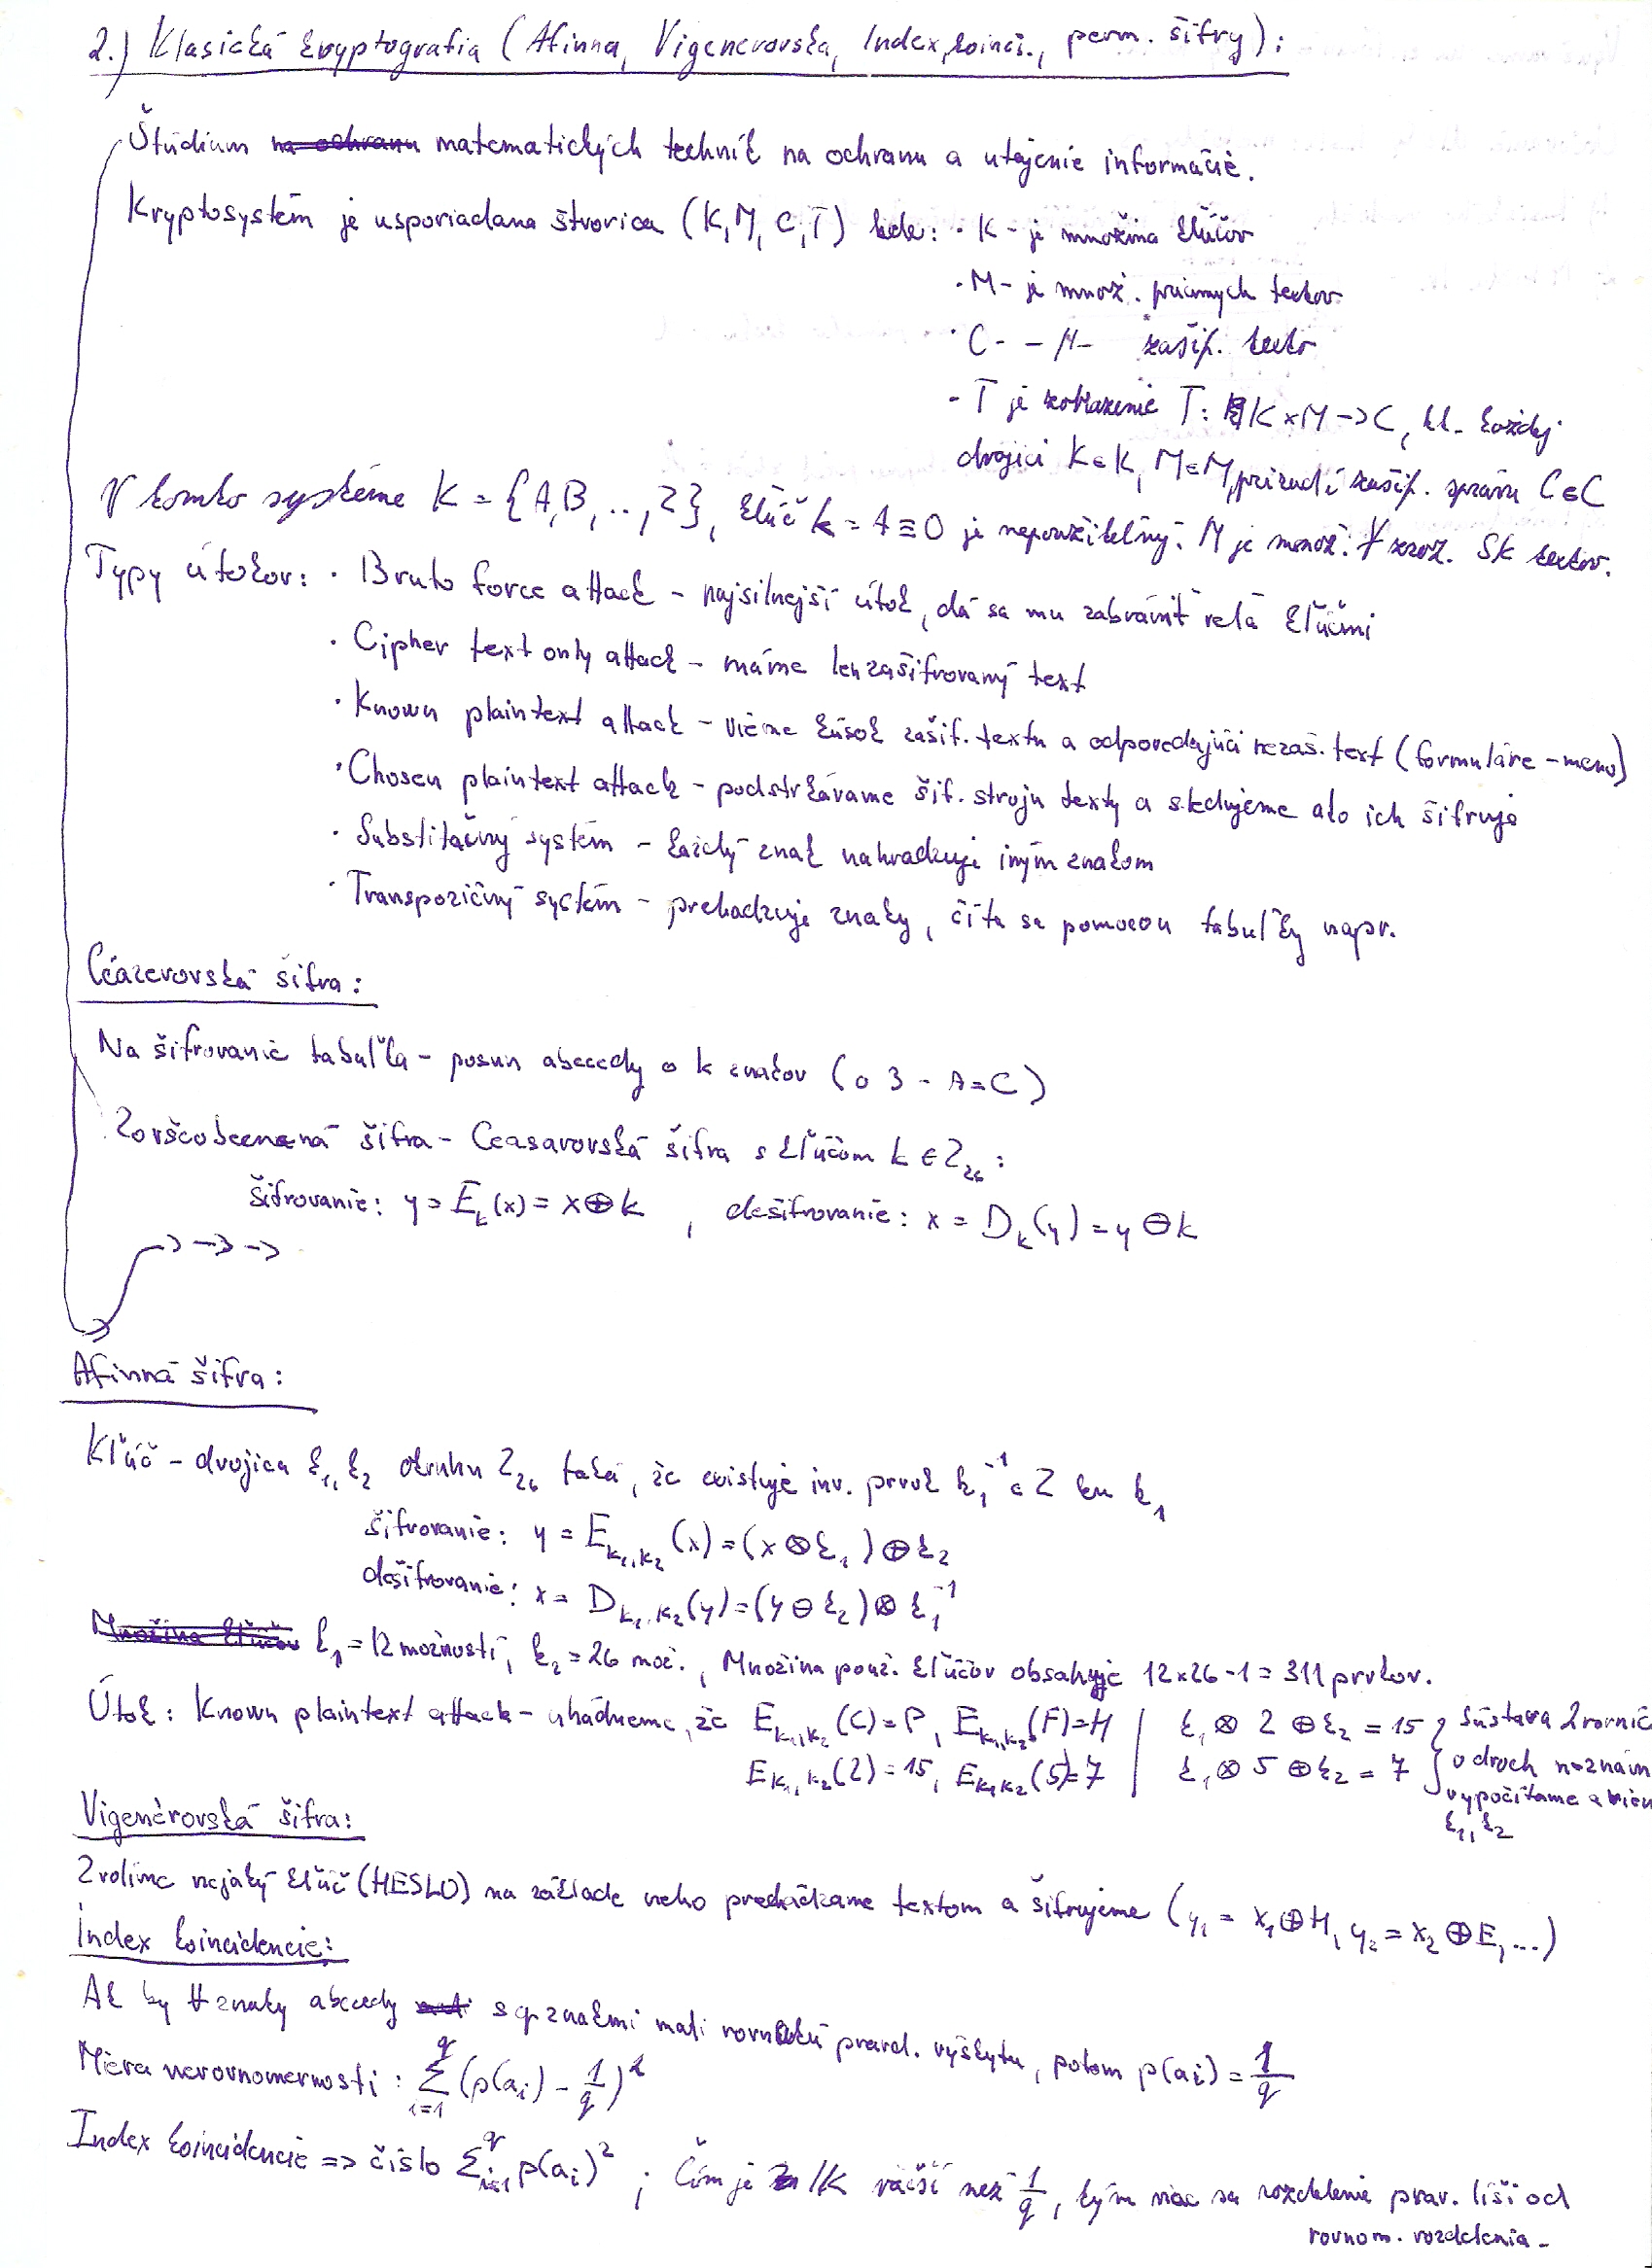 2.) Klasická kryptografia (Afinna, Vigenerovska, Index koinc., perm. šifry):
Štúdium na ochranu matematických techník na ochranu a utajenie informácie.
Kryptosystém je usporiadana štvorica (K, M, C, T) kde: · K - je množina kľúčov
· M - je množ. priamych textov
· C - -"- zašif. textov
- T je zobrazenie T: K × M -> C, kt. každej
dvojici K ∈ K, M ∈ M, priradí zašif. správu C ∈ C
V tomto systéme K = {A, B, .., Z}, kľúč k = A ≡ 0 je nepoužiteľný. M je množ. ∀ zroz. SK textov.
Typy útokov: · Bruto force attack - najsilnejší útok, dá sa mu zabrániť veľa kľúčmi
· Cipher text only attack - máme len zašifrovaný text
· Known plaintext attack - vieme kúsok zašif. textu a odpovedajúci nezaš. text (formuláre - meno)
· Chosen plaintext attack - podstrkávame šif. stroju texty a sledujeme ako ich šifruje
· Substitačný systém - každý znak nahradzuje iným znakom
· Transpozičný systém - prehadzuje znaky, číta sa pomocou tabuľky napr.
Céazerovská šifra:
Na šifrovanie tabuľka - posun abecedy o k znakov (o 3 - A = C)
Zovšeobecnená šifra - Ceasarovská šifra s kľúčom k ∈ Z₂₆:
šifrovanie: y = E_k(x) = x ⊕ k , dešifrovanie: x = D_k(y) = y ⊖ k
-> -> ->
Afinná šifra:
Kľúč - dvojica k₁, k₂ okruhu Z₂₆ taká, že existuje inv. prvok k₁⁻¹ ∈ Z ku k₁
šifrovanie: y = E_k₁,k₂(x) = (x ⊗ k₁) ⊕ k₂
dešifrovanie: x = D_k₁,k₂(y) = (y ⊖ k₂) ⊗ k₁⁻¹
Množina kľúčov k₁ = 12 možností, k₂ = 26 mož., Množina použ. kľúčov obsahuje 12x26-1 = 311 prvkov.
Útok: Known plaintext attack - uhádneme, že E_k₁,k₂(C) = P, E_k₁,k₂(F) = H | k₁ ⊗ 2 ⊕ k₂ = 15 } Sústava 2 rovníc
E_k₁,k₂(2) = 15, E_k₁,k₂(5) = 7 | k₁ ⊗ 5 ⊕ k₂ = 7 } o dvoch neznám
vypočítame a
k₁, k₂
Vigenérovská šifra:
Zvolíme nejaký kľúč (HESLO) na základe neho prechádzame textom a šifrujeme (y₁ = x₁ ⊕ H, y₂ = x₂ ⊕ E, ...)
Index koincidencie:
Ak by ∀ znaky abecedy s q znakmi mali rovnakú pravd. výskytu, potom p(aᵢ) = 1/q
Miera nerovnomernosti: Σ_{i=1}^q (p(aᵢ) - 1/q)²
Index koincidencie => číslo Σ_{i=1}^q p(aᵢ)² ; Čím je IK väčší než 1/q, tým viac sa rozdelenie prav. líši od
rovnom. rozdelenia -